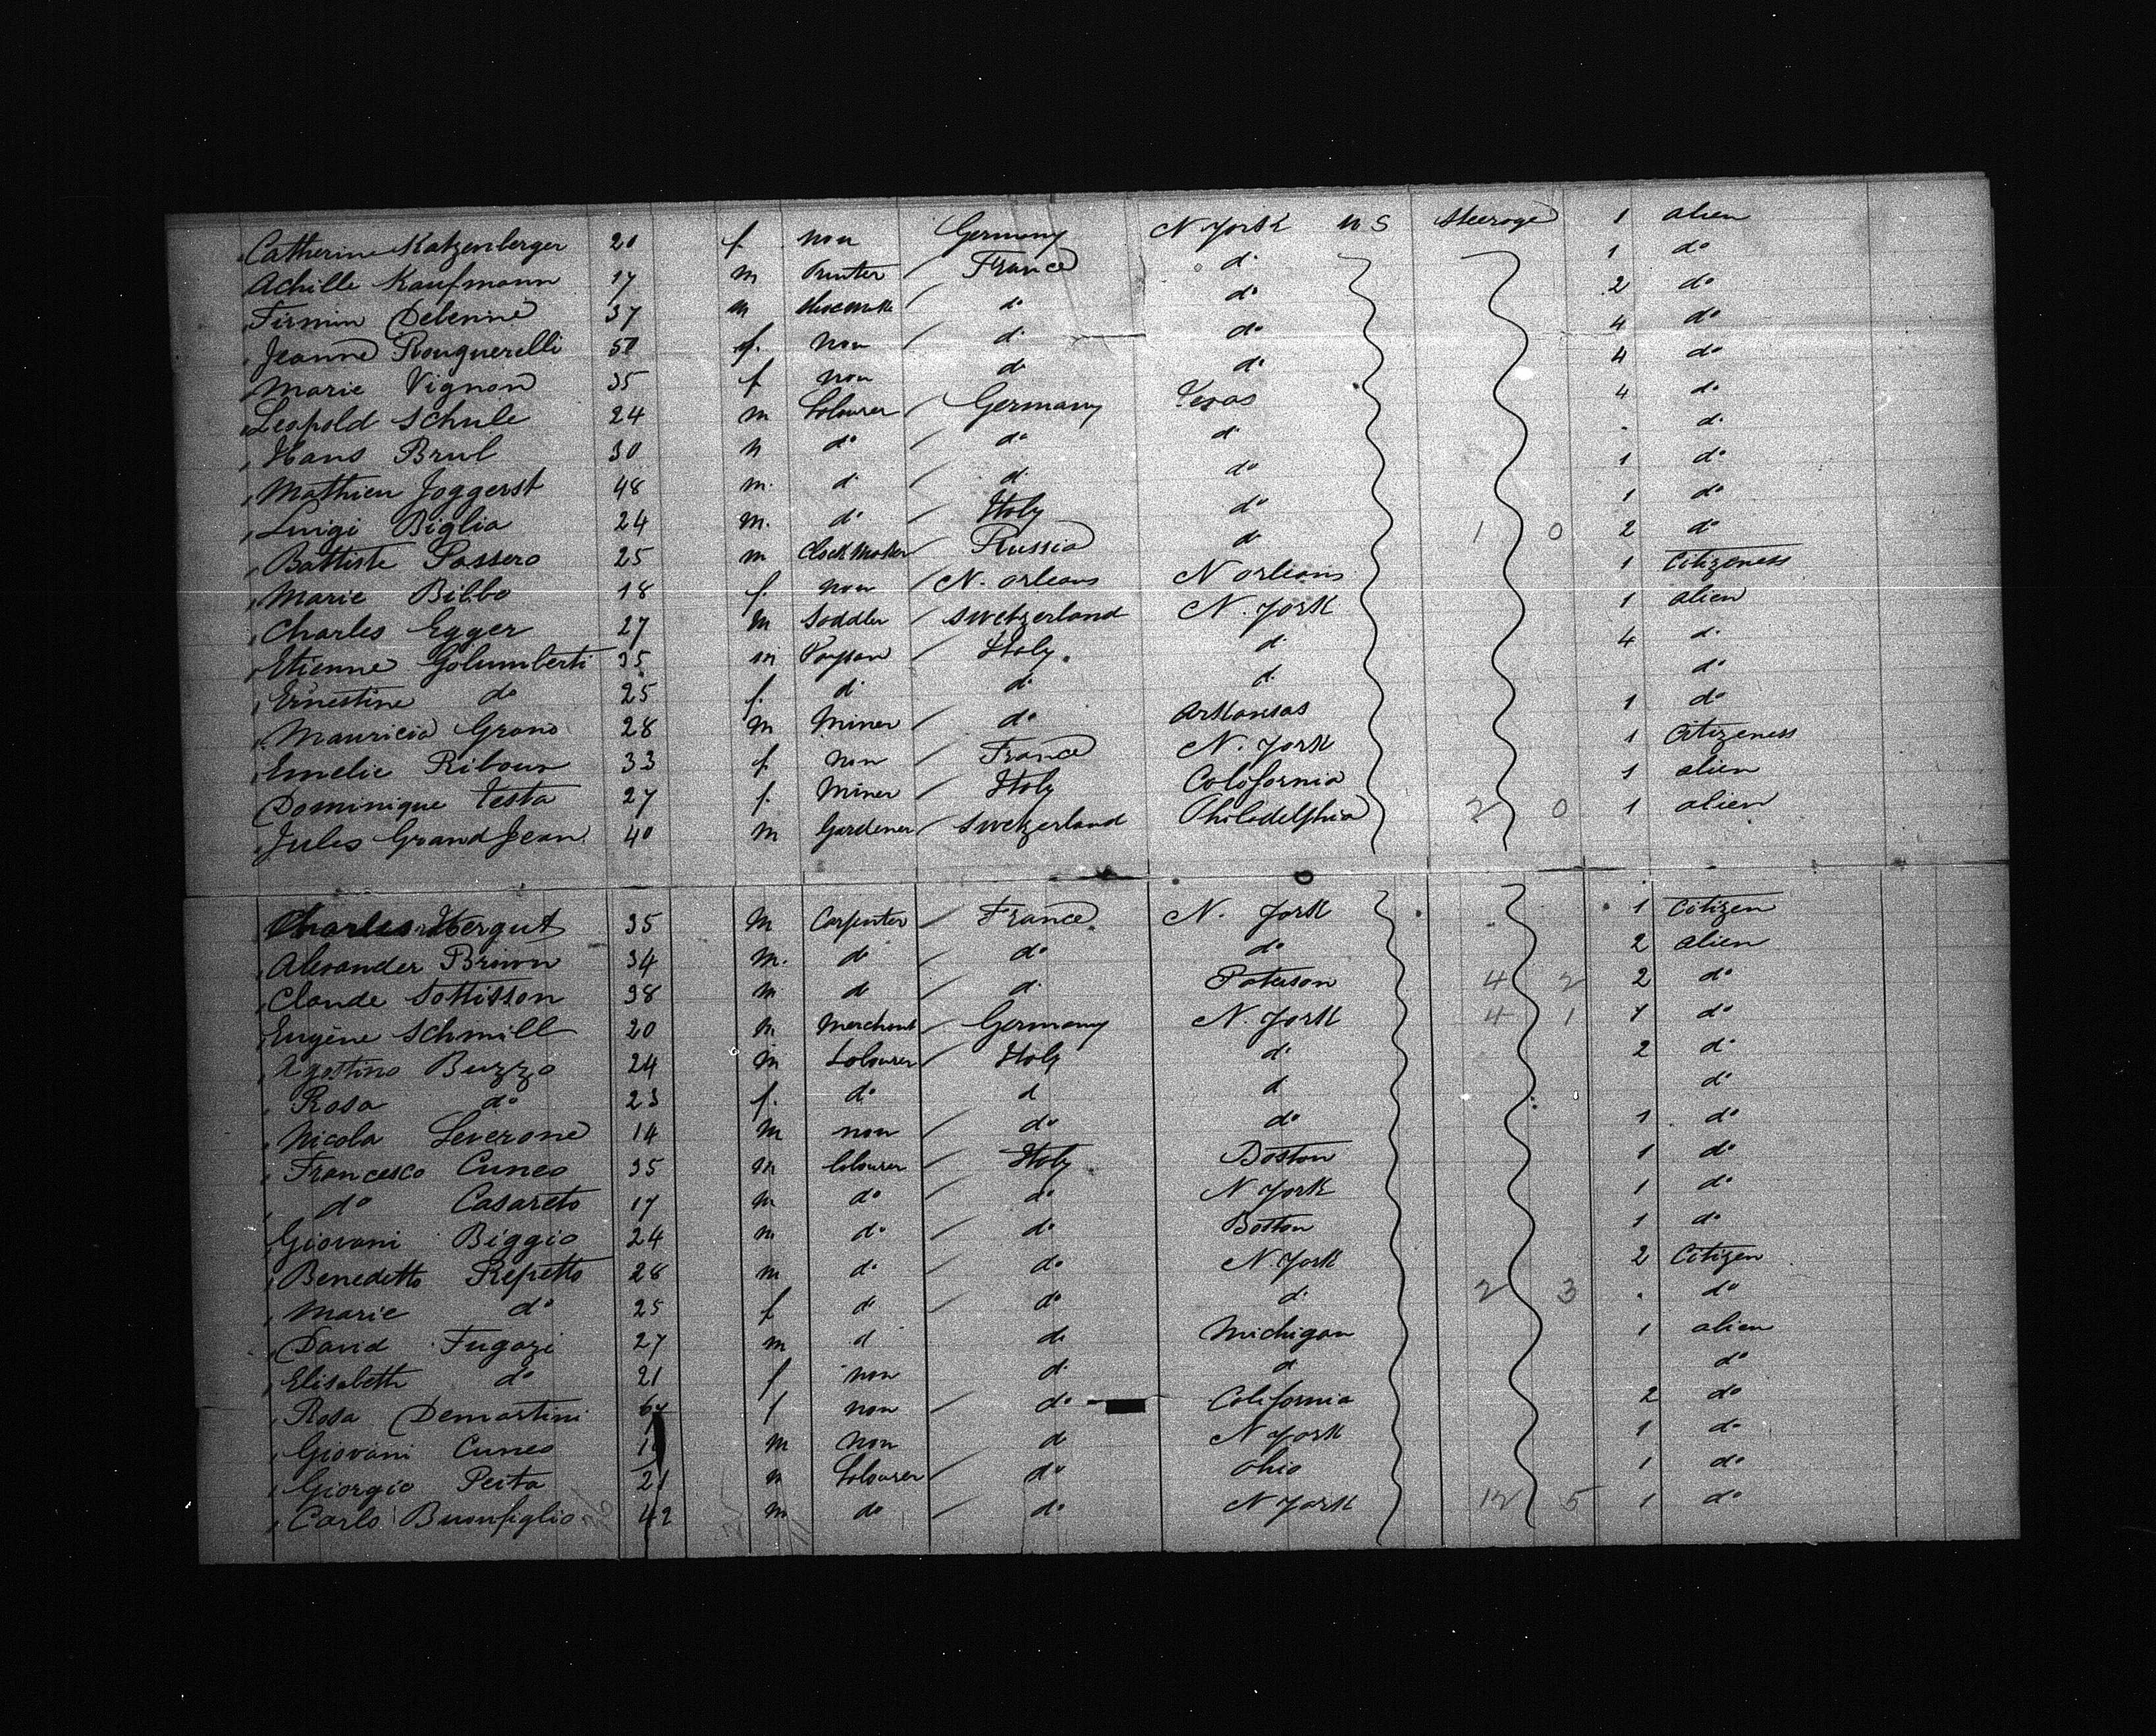 Catherine Katzenberger 20 f. non Germany N York U S Steerage 1 alien
Achille Kaufmann 17 m Printer / France do 1 do
Firmin Delenne 37 m / do do 2 do
Jeanne Rouquerelli 50 f. non / d. do 4 do
Marie Vignon 35 f non do do 4 do
Leopold Schule 24 m Labourer / Germany Texas 4 do
Hans Brul 30 m do / do d. d.
Mathieu Joggerst 48 m. d. / d. do 1 do
Luigi Biglia 24 m. do / Italy do 1 do
Battiste Sassero 25 m Clock Maker / Russia do 1 0 2 do
Marie Bilbo 18 f. non / N. Orleans N Orleans 1 Citizeness
Charles Egger 27 m Saddler / Swetzerland N. York 1 alien
Etienne Golumberti 35 m Paysan / Italy d. 4 d.
Ernestine do 25 f. d. d. d. do
Mauricia Grano 28 m Miner / do Arkansas 1 do
Emelie Ribour 33 f. non / France N. York 1 Citizeness
Dominique Testa 27 f. Miner / Italy California 1 alien
Jules GrandJean 40 m Gardener / Swetzerland Philadelphia 2 0 1 alien
Charles Hergut 35 m Carpenter / France N. York 1 Citizen
Alexander Brown 34 m. do / do do 2 alien
Claude Sottisson 38 m d / d. Paterson 4 2 2 do
Eugène Schmill 20 m Merchant / Germany N. York 4 1 1 do
Agostino Buzzo 24 m Labourer / Italy d. 2 d.
Rosa do 23 f. do d d do
Nicola Leverone 14 m non / do do 1 do
Francesco Cuneo 35 m labourer / Italy Boston 1 do
do Casareto 17 m do / do N York 1 do
Giovani Biggio 24 m do / do Boston 1 do
Benedetto Repetto 28 m do / do N. York 2 Citizen
Marie do 25 f do / do d. 2 3 do
David Fugazi 27 m d do Michigan 1 alien
Elisabeth do 21 f non d. d do
Rosa Demartini f non / do California 2 do
Giovani Cuneo m non d N York 1 do
Giorgio Peita 21 m Labourer / do Ohio 1 do
Carlo Buonfiglio 42 m do / do N York 12 5 1 do